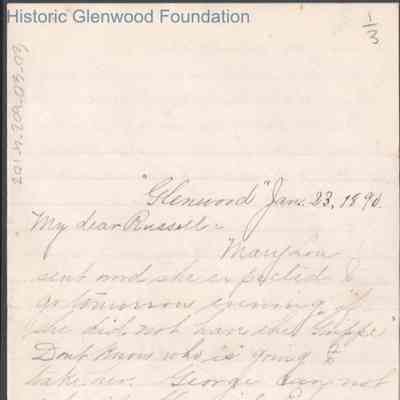 Historic Glenwood Foundation
1/3
"Glenwood" Jan. 23, 1890.
My dear Russell-
Mary Lou
sent word she expected to
go tomorrow evening "if
she did not have the "Grippe"
Dont know who is going to
take her. George can not